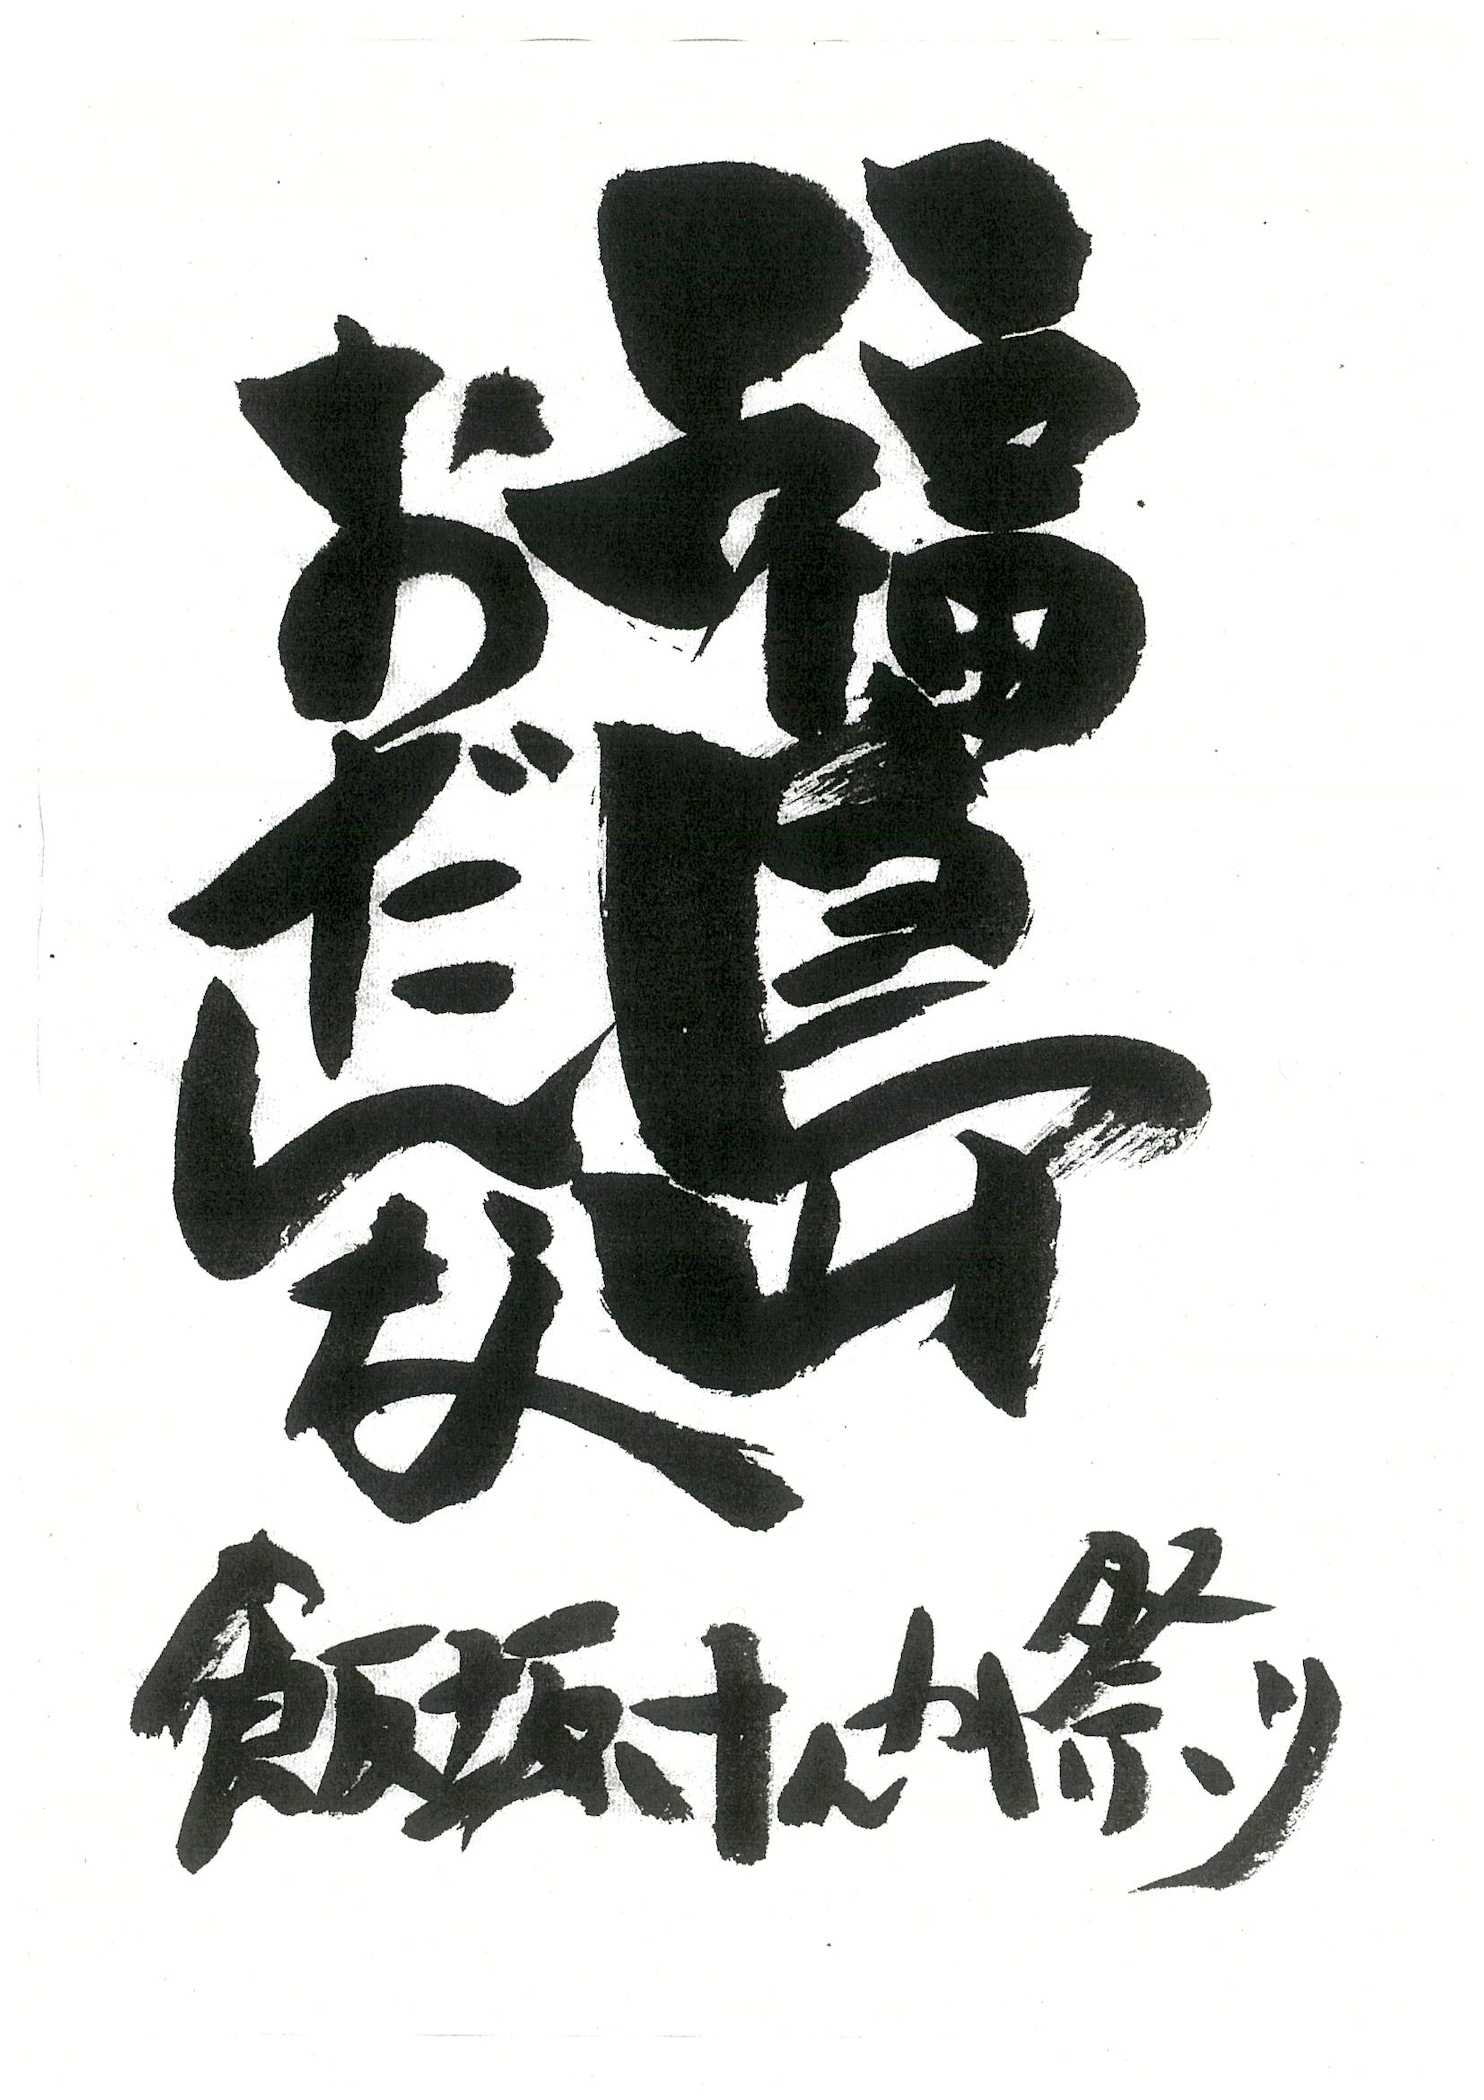 福島
おだんな
飯坂けんか祭り